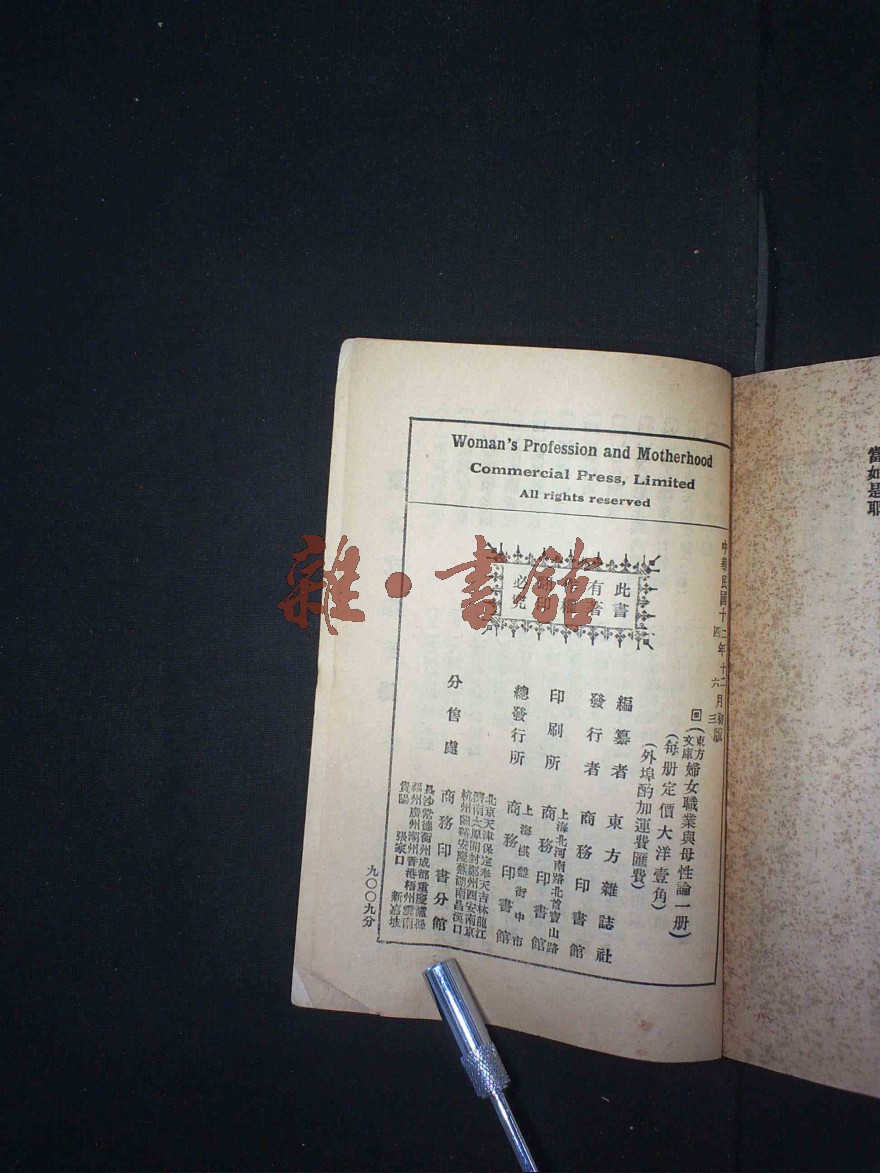 Woman's Profession and Motherhood
Commercial Press, Limited
All rights reserved
中華民國十二年十二月初版
四 六 三
東方文庫 婦女職業與母性論一册
(每册定價大洋壹角)
(外埠酌加運費匯費)
此書
有著
作權
翻印
必究
編纂者 東方雜誌社
發行者 商務印書館
上海北河南路北首寶山路
印刷所 商務印書館
上海棋盤街中市
總發行所 商務印書館
分售處 商務印書分館
北京天津保定奉天吉林龍江
濟南太原開封鄭州西安南京
杭州蘭谿安慶蕪湖南昌漢口
長沙常德衡州成都重慶瀘縣
福州廣州潮州香港梧州雲南
貴陽 張家口 新嘉坡
九〇〇九分
雜·書館
當如是耶